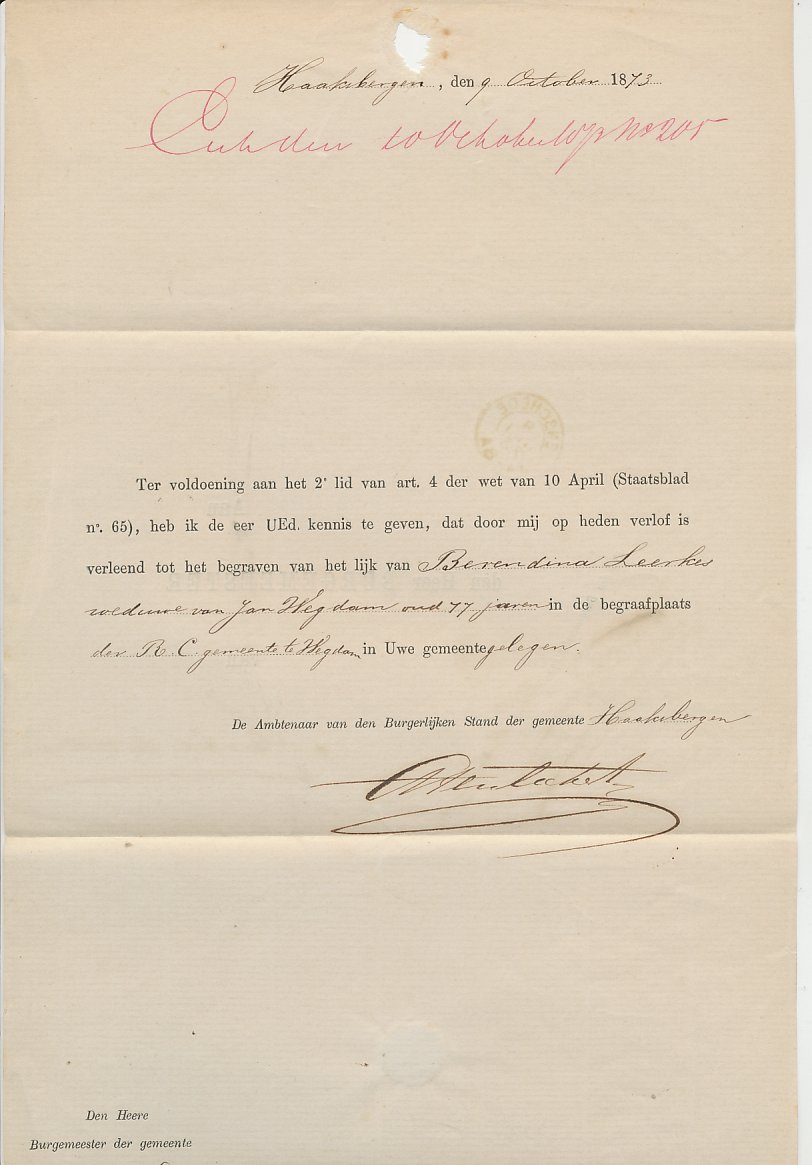 Haaksbergen, den 9 October 1873
den 10 October No 205
Ter voldoening aan het 2e lid van art. 4 der wet van 10 April (Staatsblad
no. 65), heb ik de eer UEd. kennis te geven, dat door mij op heden verlof is
verleend tot het begraven van het lijk van Berendina Leerkes
weduwe van Jan Wegdam oud 77 jaren in de begraafplaats
der R. C. gemeente te Wegdam in Uwe gemeente gelegen.
De Ambtenaar van den Burgerlijken Stand der gemeente Haaksbergen
Den Heere
Burgemeester der gemeente